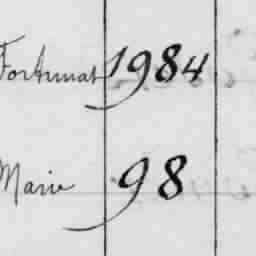 Fortunat 1984
Marie 98